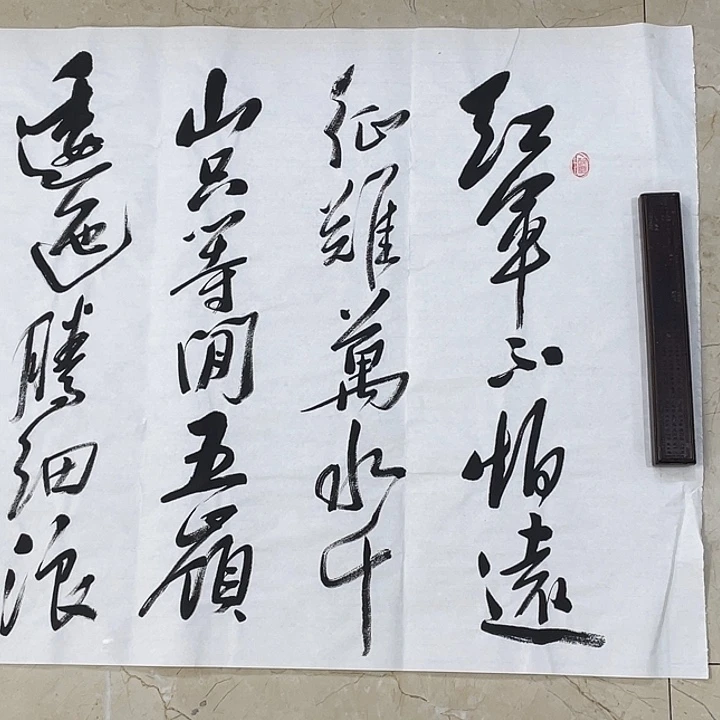 紅軍不怕遠
征難萬水千
山只等閒五嶺
逶迤騰細浪